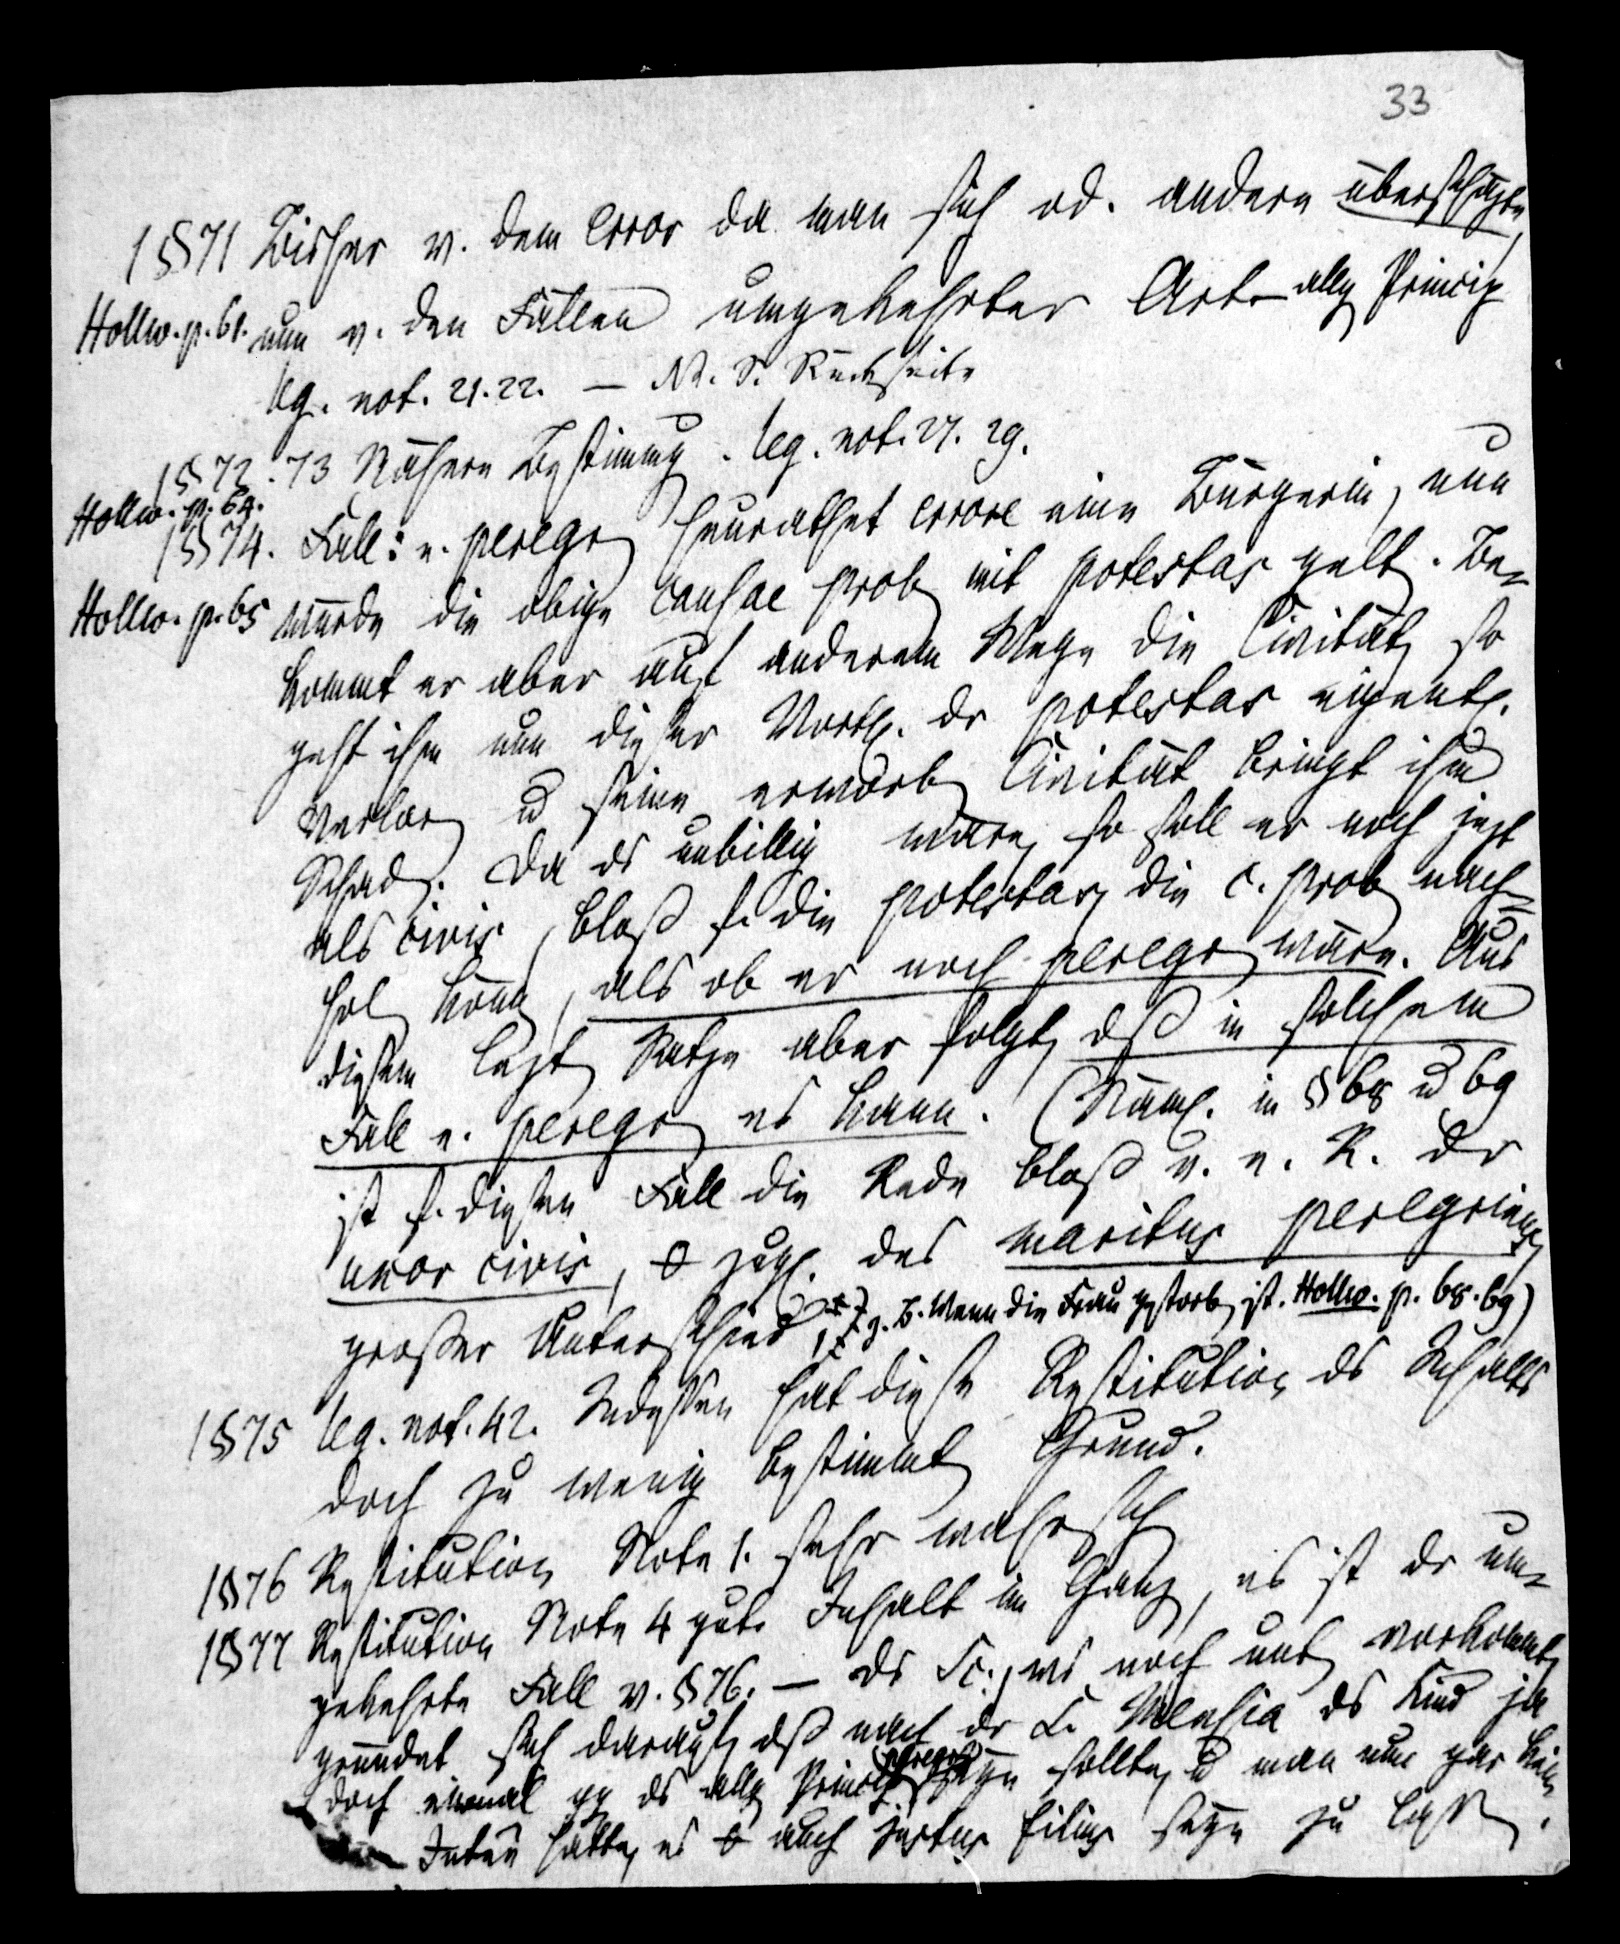 33
1§71 Bisher v. dem Error da man sich od. andere überschäzte,
Hollw. p. 61. nun v. den Fällen umgekehrter Art – allg Princip
leg. not. 21. 22. — N. S. Rückseite
1§72. 73 Nähere Bestimmg. leg. not. 27. 29.
Hollw. p. 64.
1§74. Fall: e. peregr heurathet errore eine Bürgerin, nun
Hollw. p. 65 wurde die obige causae prob mit potestas gelt. Be-
kommt er aber auf anderem Wege die Civität, so
geht ihm nun dieser Vorth. dr potestas eigentl.
verlor u seine erworb Civität bringt ihm
Schad. Da ds unbillig wäre, so soll er noch jezt
als civis, bloß f. die potestas, die c. prob nach-
hol könn, als ob er noch peregr wäre. Aus
diesem lezt Satze aber folgt, dß in solchem
Fall e. peregr es kann. (Näml. in §68 u 69
ist f. diesen Fall die Rede bloß v. e. R. dr
uxor civis, 0 zugl. des maritus peregrinus,
großer Unterschied, z. B. wenn die Frau gestorb ist. Hollw. p. 68. 69)
1§75 leg. not. 42. Indessen hat diese Restitution ds Inhalts
doch zu wenig bestimmt Grund.
1§76 Restitution Note 1. sehr wahrsch
1§77 Restitution Note 4 gut. Inhalt im Ganz, es ist dr um-
gekehrte Fall v. §76. — ds Sc., ws noch unt vorkommt,
gründet sich darauf, dß nach dr L. Mensia ds Kind ja
doch einmal gg ds allg Princip peregr seyn sollte, u man nun gar kein
Inten hatte, es 0 auch justus filius seyn zu lass.